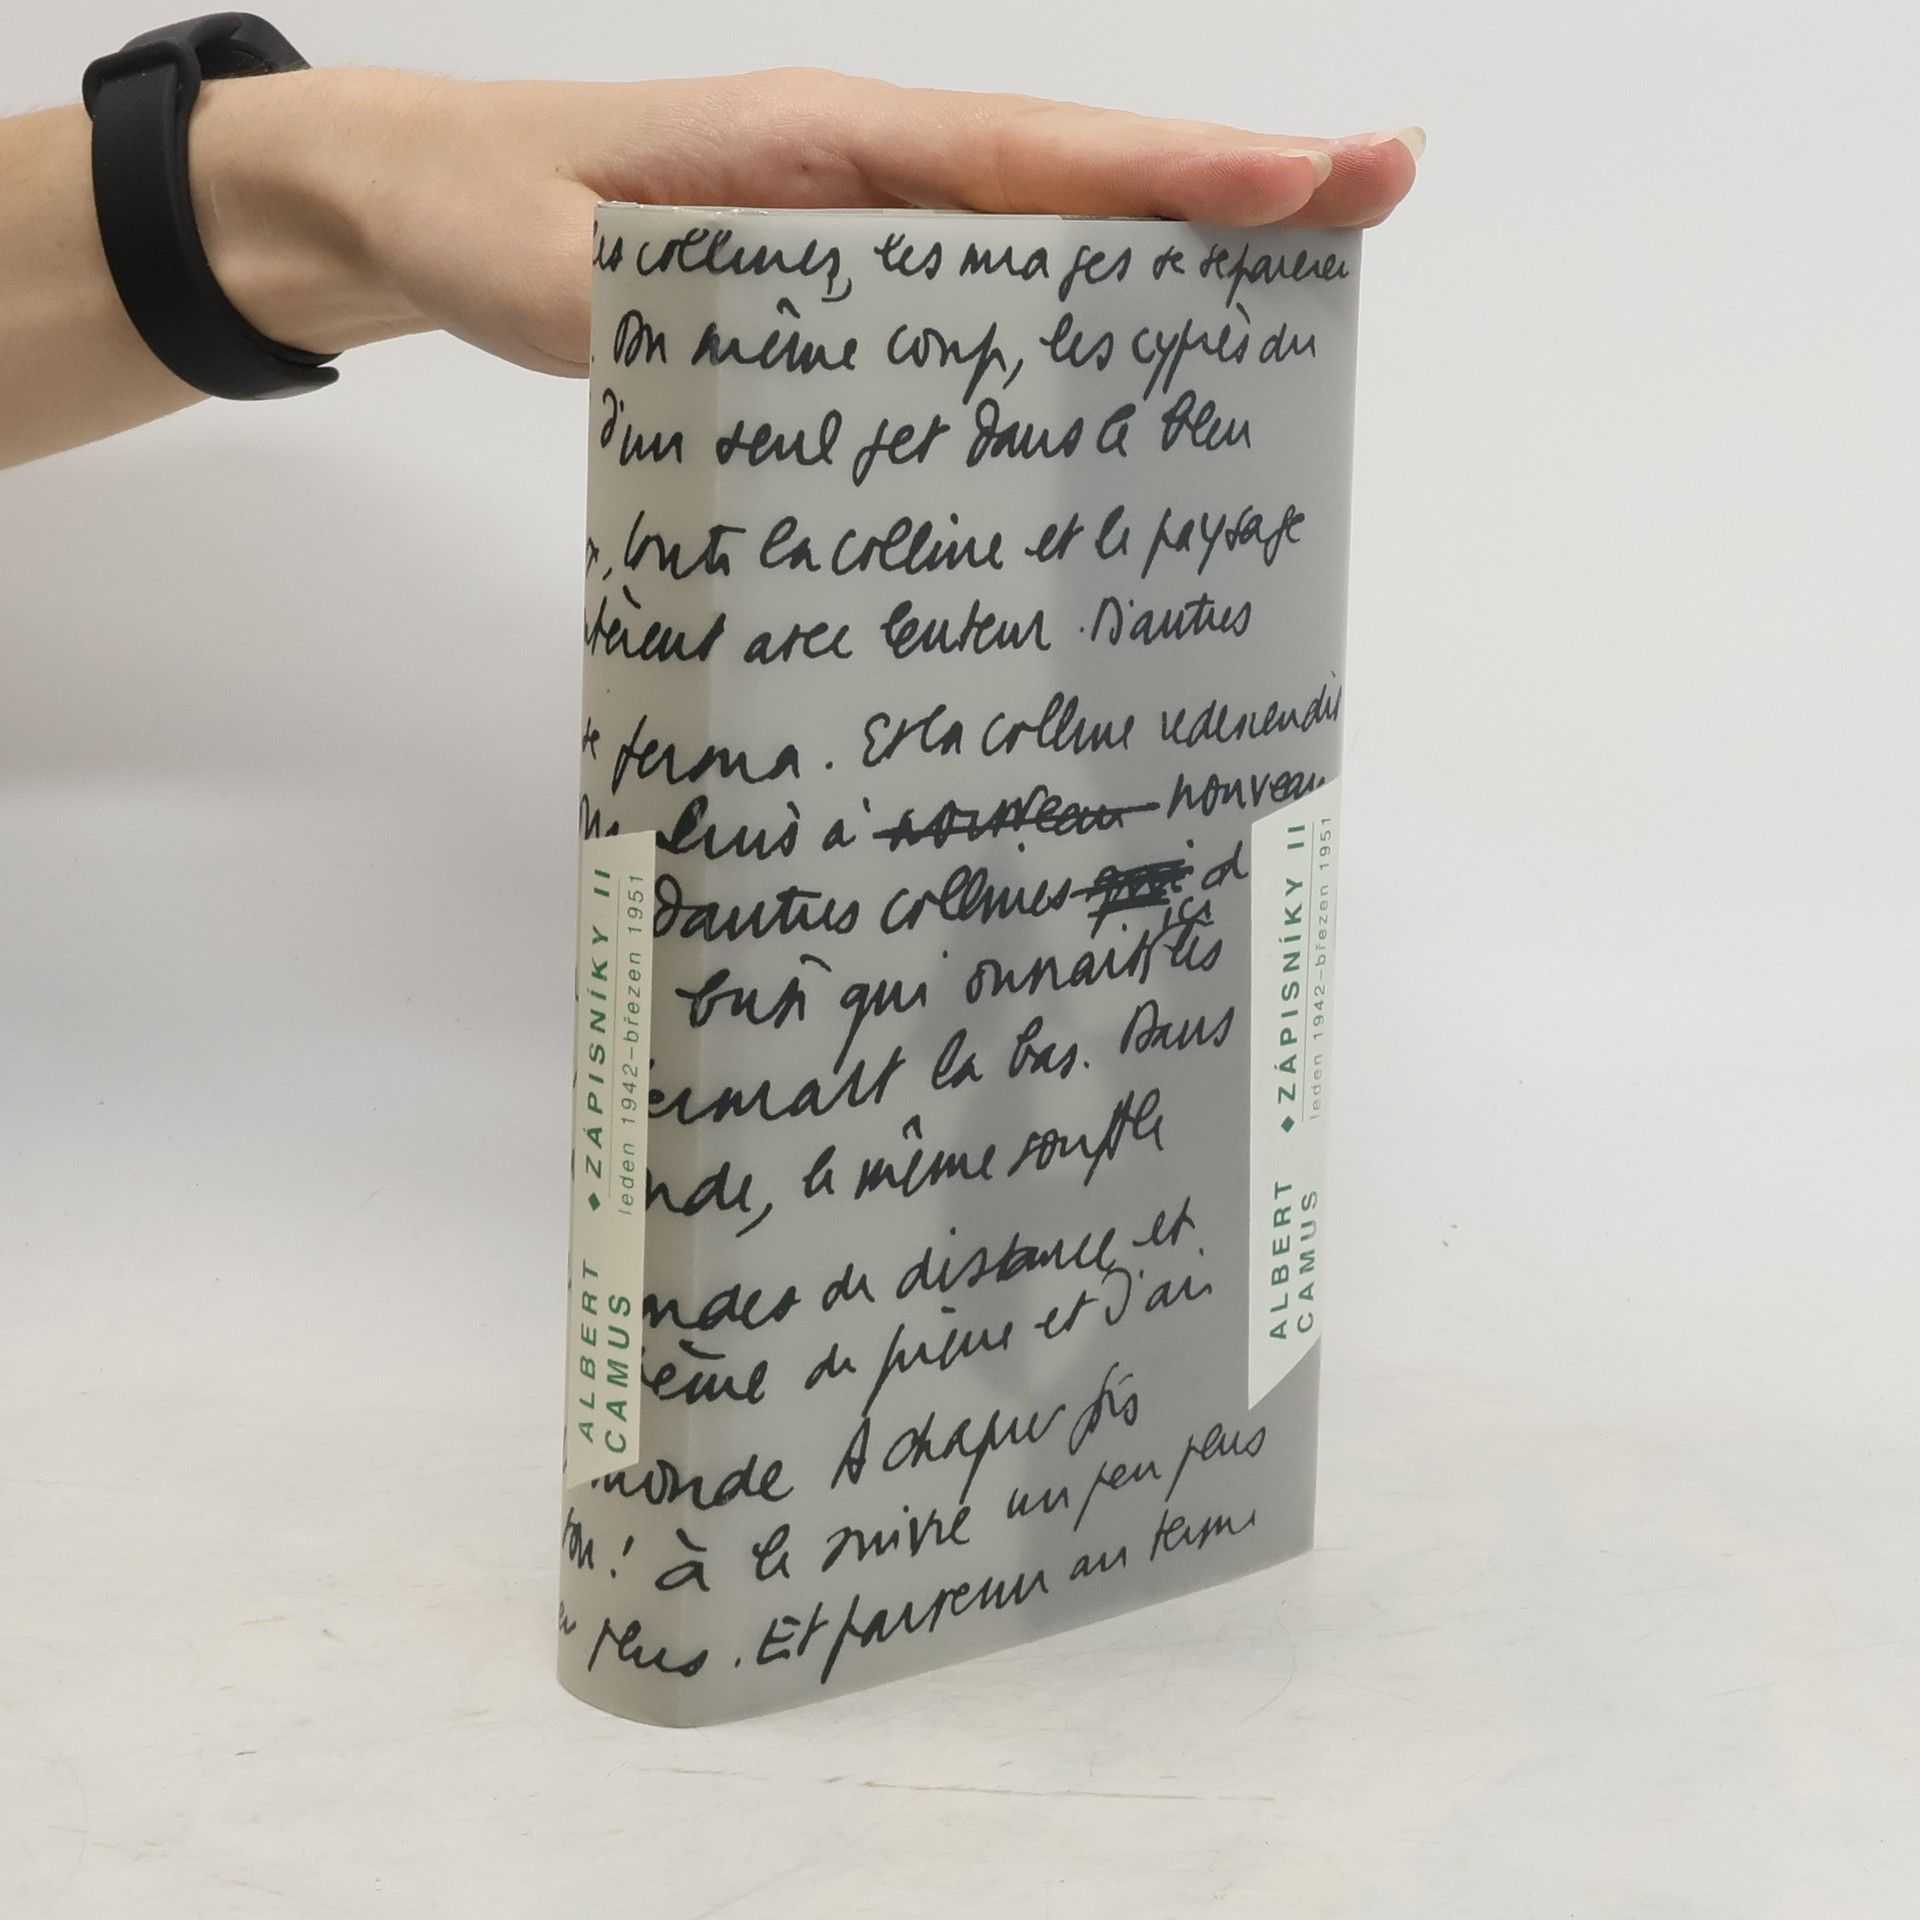 les collines, les nuages se séparèren
. Du même coup, les cyprès du
d'un seul jet dans le bleu
, toute la colline et le paysage
ntèrent avec lenteur. D'autres
se ferma. Et la colline redescendit
luis à nouveau nouveau
d'autres collines qui d
ici
qui les
la bas. Dans
nde, le même souffle
ondes de distance et
de pierre et d'air
monde A chaque fois
! à le suivre un peu plus
plus. Et parvenu au terme
ALBERT CAMUS ◆ ZÁPISNÍKY II
leden 1942–březen 1951
ALBERT CAMUS ◆ ZÁPISNÍKY II
leden 1942–březen 1951